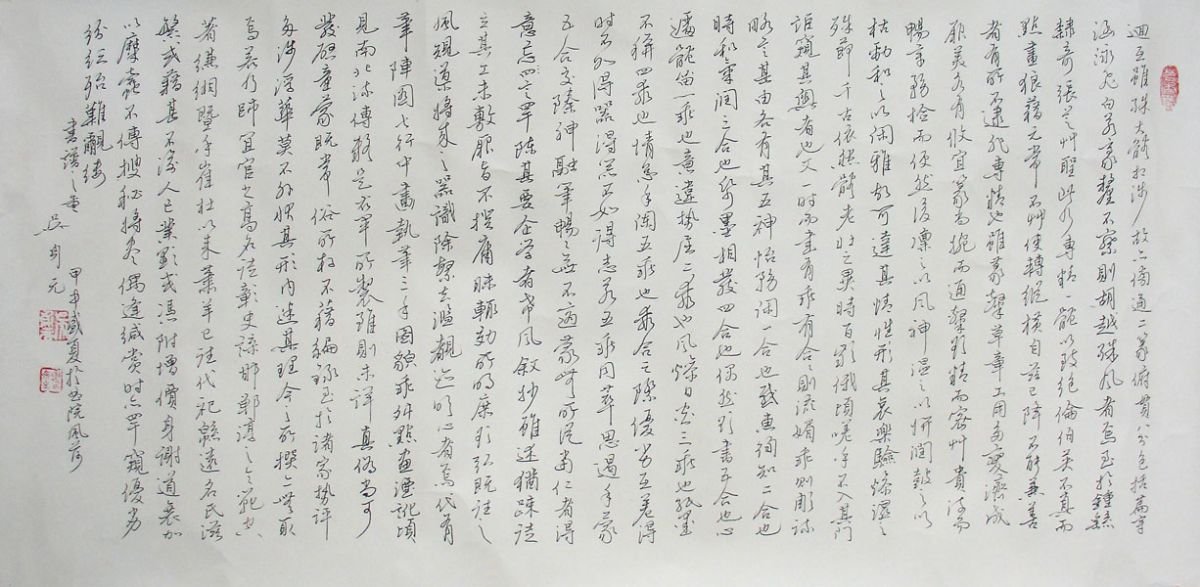 迴互雖殊大體相涉故亦傍通二篆俯貫八分包括篇章
涵泳飛白若毫釐不察則胡越殊風者焉至於鍾繇
隸奇張芝草聖此乃專精一體以致絕倫伯英不真而
點畫狼藉元常不草使轉縱橫自茲已降不能兼善
者有所不逮非專精也雖篆隸草章工用多變濟成
厥美各有攸宜篆尚婉而通隸欲精而密草貴流而
暢章務檢而便然後凜之以風神溫之以妍潤鼓之以
枯勁和之以閑雅故可達其情性形其哀樂驗燥濕之
殊節千古依然體老壯之異時百齡俄頃嗟乎不入其門
詎窺其奧者也又一時而書有乖有合合則流媚乖則彫疎
略言其由各有其五神怡務閑一合也感惠徇知二合也
時和氣潤三合也紙墨相發四合也偶然欲書五合也心
遽體留一乖也意違勢屈二乖也風燥日炎三乖也紙墨
不稱四乖也情怠手闌五乖也乖合之際優劣互差得
時不如得器得器不如得志若五乖同萃思遏手蒙
五合交臻神融筆暢暢無不適蒙無所從當仁者得
意忘言罕陳其要企學者希風敘妙雖述猶疎徒
立其工未敷厥旨不揆庸昧輒効所明庶欲弘既往之
風規導將來之器識除繁去濫覩迹明心者焉代有
筆陣圖七行中畫執筆三手圖貌乖舛點畫湮訛頃
見南北流傳疑是右軍所製雖則未詳真偽尚可
發啟童蒙既常俗所存不藉編錄至於諸家勢評
多涉浮華莫不外狀其形內迷其理今之所撰亦無取
焉若乃師宜官之高名徒彰史諜邯鄲淳之令範空
著縑緗暨乎崔杜以來蕭羊已往代祀緜遠名氏滋
繁或藉甚不渝人亡業顯或憑附增價身謝道衰加
以糜蠹不傳搜秘將盡偶逢緘賞時亦罕窺優劣
紛紜殆難覼縷
書譜之壹 甲申盛夏於書院風荷